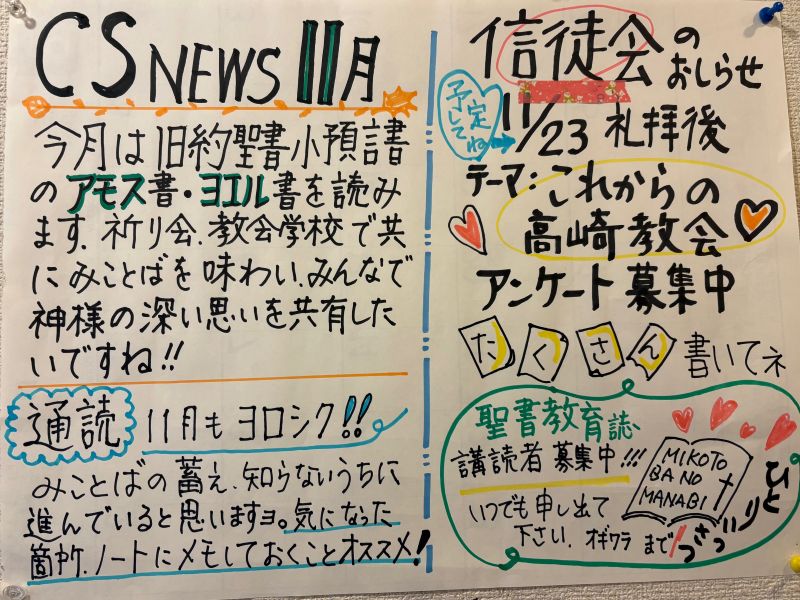 CS NEWS 11月
今月は旧約聖書小預言書
のアモス書・ヨエル書を読み
ます。祈り会、教会学校で共
にみことばを味わい、みんなで
神様の深い思いを共有した
いですね!!
通読 11月もヨロシク!!
みことばの蓄え、知らないうちに
進んでいると思いますヨ。気になった
箇所、ノートにメモしておくことオススメ!
信徒会の
おしらせ
予定
してね
11/23 礼拝後
テーマ:これからの
高崎教会
アンケート募集中
たくさん 書いてネ
聖書教育誌
講読者 募集中!!!
いつでも申し出て
下さい。オギワラ まで
MIKOTO
BA NO
MANABI
ひとり
いっさつ